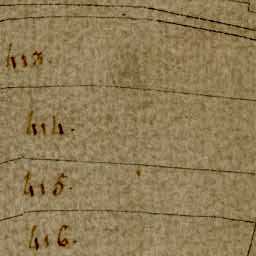 413.
414.
415.
416.